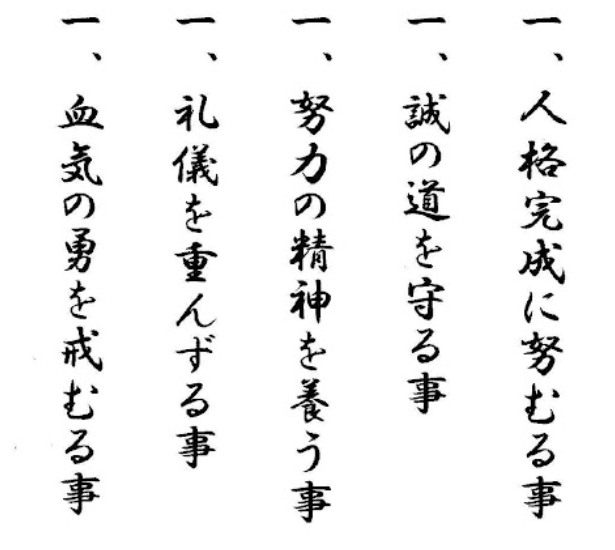 一、人格完成に努むる事
一、誠の道を守る事
一、努力の精神を養う事
一、礼儀を重んずる事
一、血気の勇を戒むる事